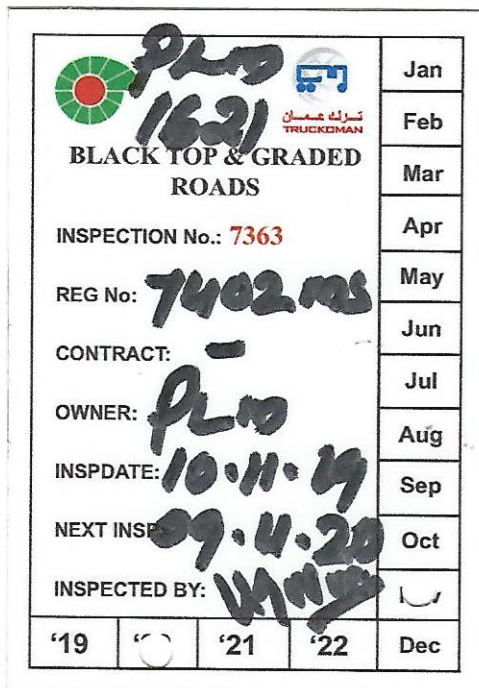 PLIO
1621
ترك عمان
TRUCKOMAN
BLACK TOP & GRADED
ROADS
INSPECTION No.: 7363
REG No: 7402 MS
CONTRACT: -
OWNER: PLIO
INSPDATE: 10.11.19
NEXT INSP 09.11.20
INSPECTED BY:
Jan
Feb
Mar
Apr
May
Jun
Jul
Aug
Sep
Oct
Dec
'19
'21
'22